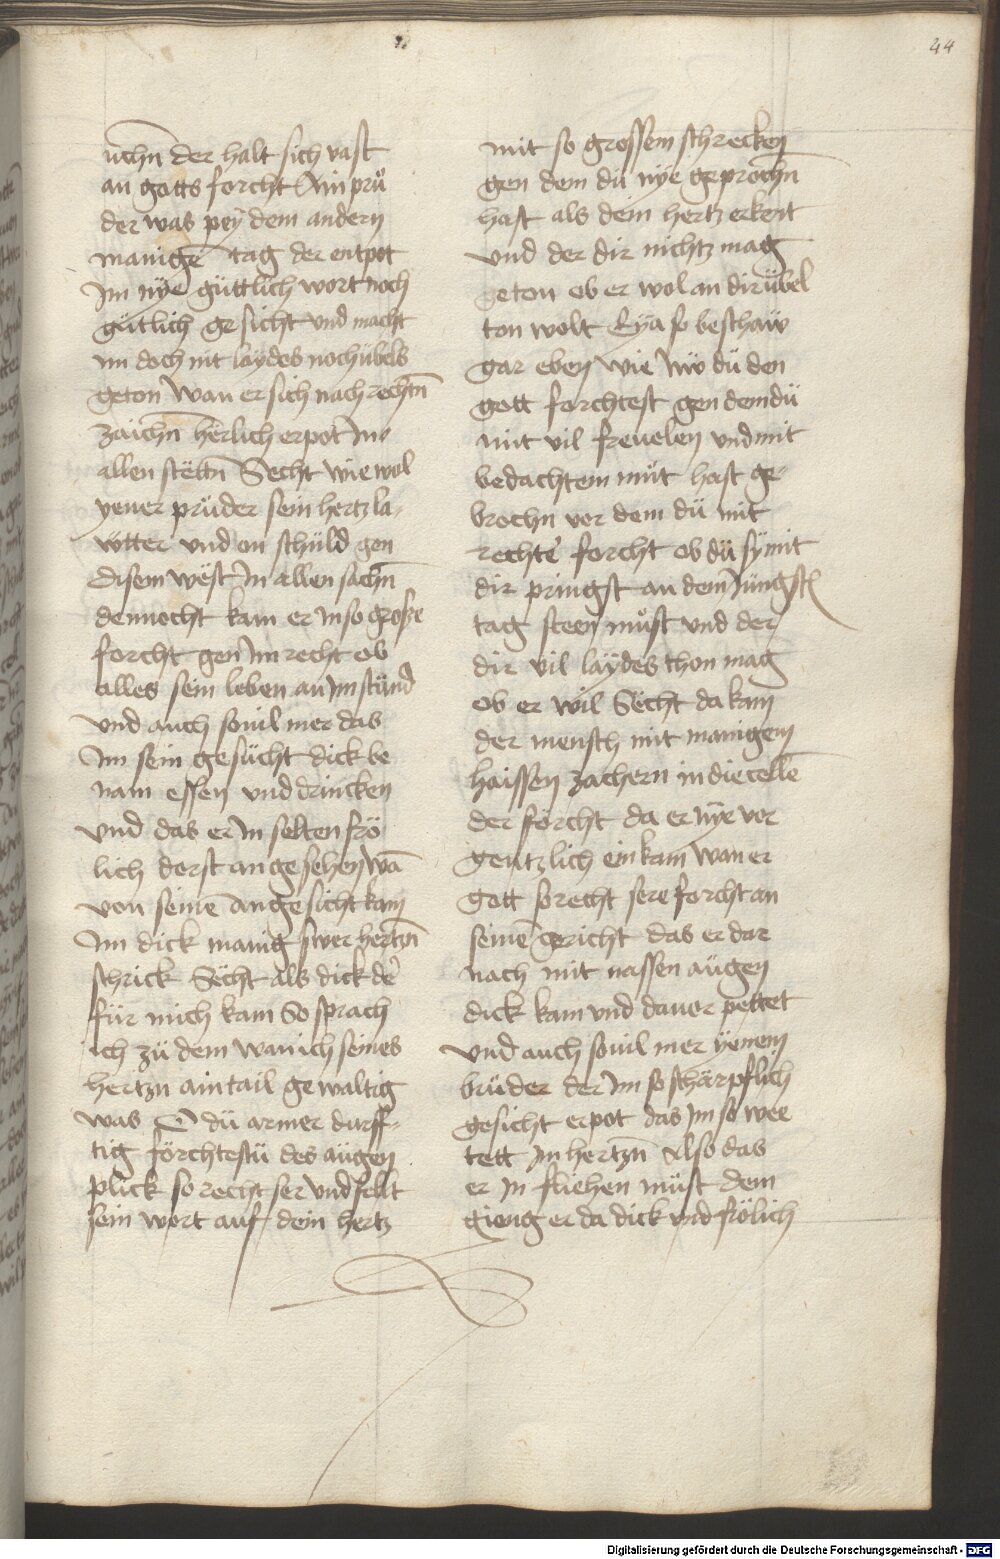 44
uchn̄ der halt sich vast
an gotts forcht Ain prů
der was peÿ dem andern
manigē tag der entpot
Im nÿe güttlich wort noch
gütlich gesicht vnd macht
im doch nit laÿdes noch übels
geton wan er sich nach rechtn̄
zaichn̄ herlich erpot Im
allen stëttn̄ Secht wie wol
yener prüder sein hertz la-
wtter vnd on schüld gen
disem wëst In allen sachn̄
dennocht kam er In so große
forcht gen Im recht ob
alles sein leben an Im stünd
vnd auch souil mer das
Im sein gesücht dick be
nam essen vnd drincken
vnd das er In selten frö
lich dorst angesehen wā
von seinē angesicht kam
Im dick manig swer hertzn̄
schrick Sëcht als dick der
für mich kam So sprach
ich zü dem wan ich seines
hertzn ain tail gewaltig
was O dü armer dürff-
tig förchtestü des augen
plick so recht ser vnd felt
sein wort auf dein hertz
mit so grossem schrecken
gen dem dü nÿe geprochn̄
hast als dein hertz erkent
vnd der dir nichtz mag
geton ob er wol an dir übel
ton wolt Eÿa so beschaw
gar eben wie nw dü den
gott forchtest gen dem dü
mit vil freuelen vnd mit
bedachtem müt hast ge-
brochn vor dem dü mit
rechter forcht ob dü sÿ mit
dir pringst an dem Jüngstn̄
tag steen müst vnd der
dir vil laÿdes thon mag
ob er wil Sëcht da kam
der mensch mit manigem
haissen zachern in die celle
der forcht da er nÿe vor
gentzlich ein kam wan er
gott so recht sere forcht an
seinē gericht das er dar
nach mit nassen augen
dick kam vnd dauor pettet
vnd auch souil mer ÿenem
brüder der Im so schärpflich
gesicht erpot das Im so wee
tett Im hertzn̄ Also das
er In fliehen müst dem
gieng er da dick vnd frölich
Digitalisierung gefördert durch die Deutsche Forschungsgemeinschaft - DFG